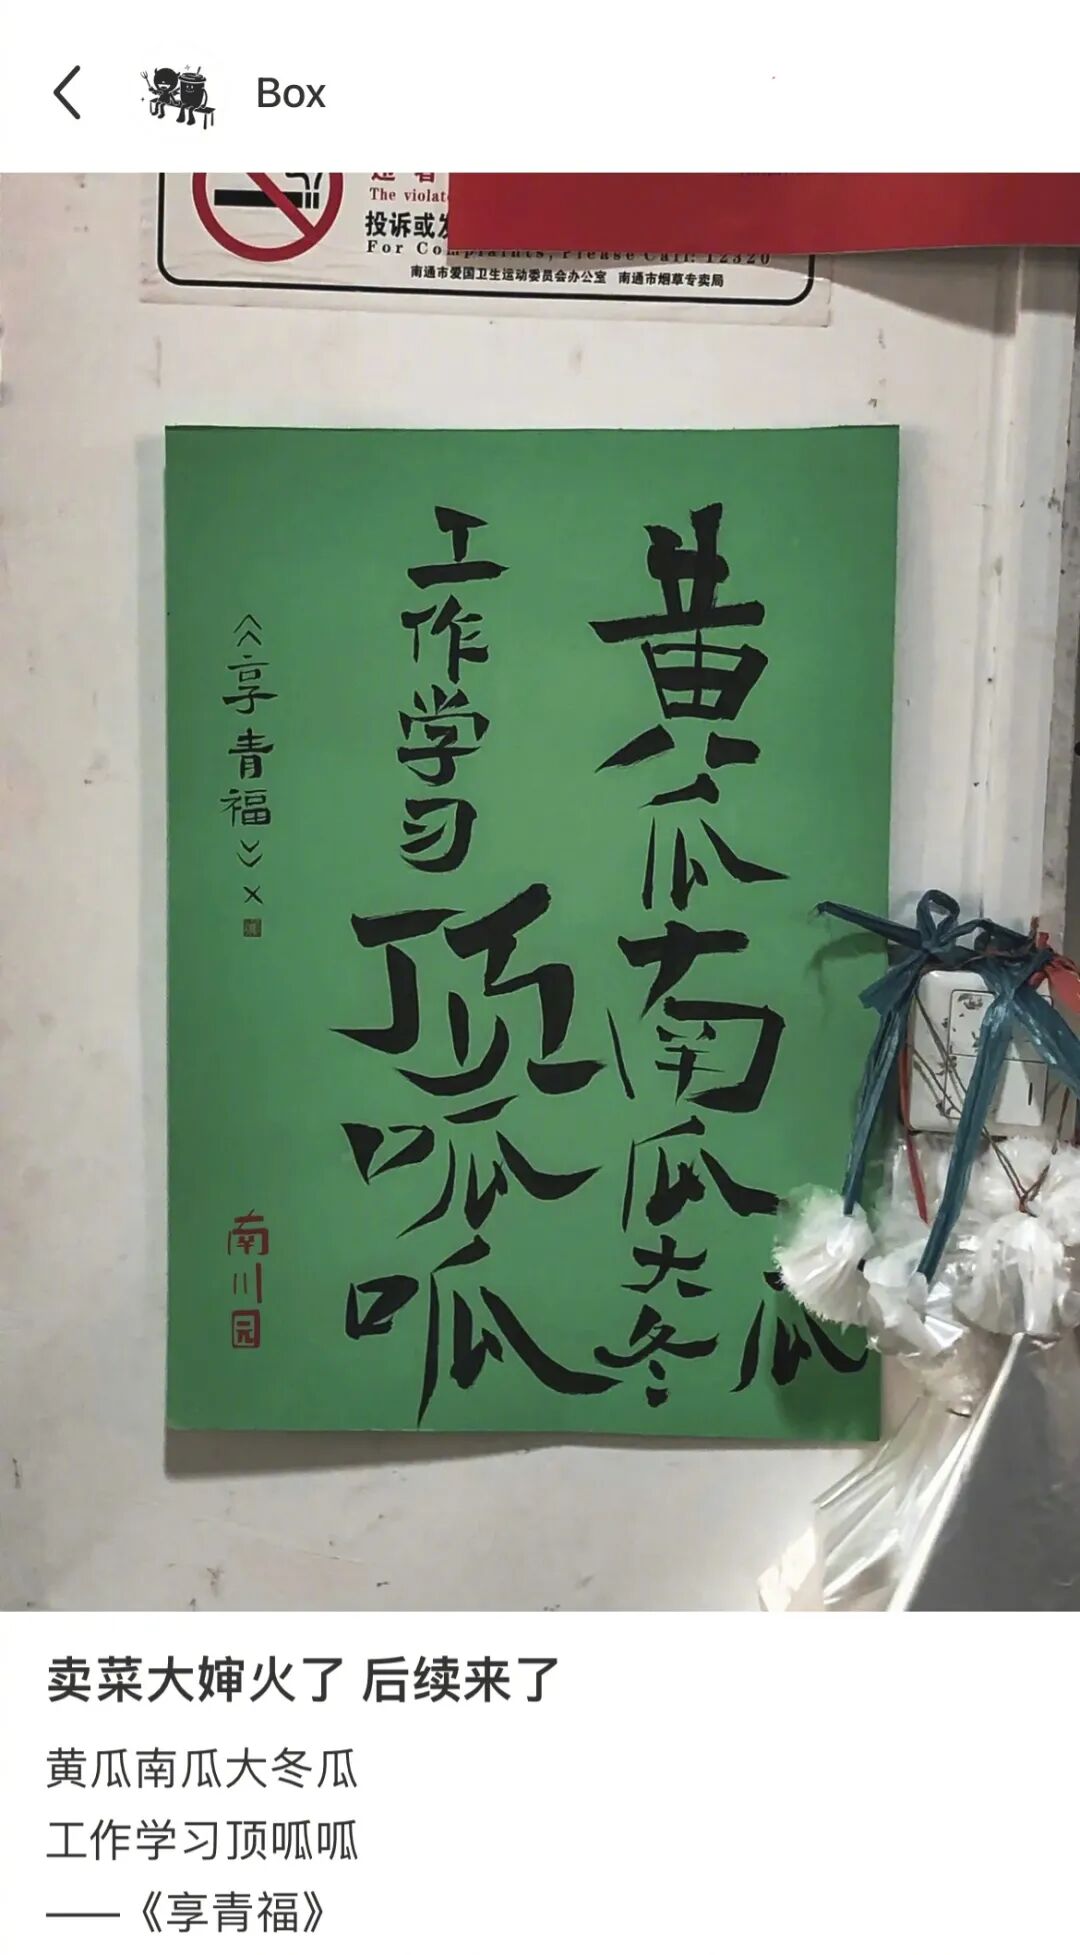 Box
The violat
投诉或
For Complaints, Please Call: 12320
南通市爱国卫生运动委员会办公室 南通市烟草专卖局
黄瓜南瓜大冬瓜
工作学习顶呱呱
《享青福》
南川园
卖菜大婶火了 后续来了
黄瓜南瓜大冬瓜
工作学习顶呱呱
——《享青福》